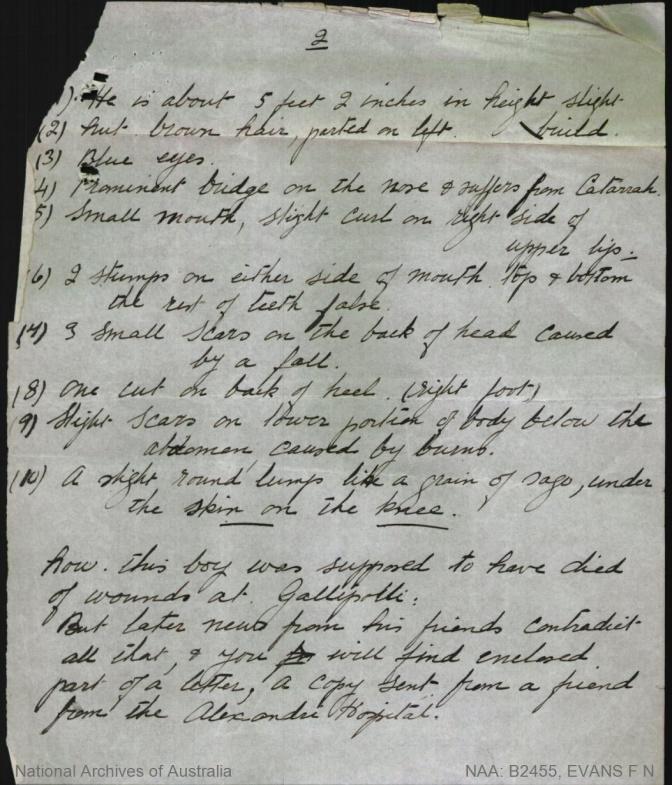 2
1). He is about 5 feet 2 inches in height slight
build.
(2) nut brown hair, parted on left.
(3) Blue eyes.
4) Prominent bridge on the nose & suffers from Catarrah.
5) Small mouth, slight curl on right side of
upper lip.
(6) 2 stumps on either side of mouth top & bottom
the rest of teeth false.
(7) 3 small scars on the back of head caused
by a fall.
(8) one cut on back of heel. (right foot)
(9) Slight scars on lower portion of body below the
abdomen caused by burns.
(10) A slight round lumps like a grain of sago, under
the skin on the knee.
now. this boy was supposed to have died
of wounds at Gallipolli:
But later news from his friends contradict
all that, & you will find enclosed
part of a letter, a copy sent from a friend
from the Alexandri Hospital.
National Archives of Australia
NAA: B2455, EVANS F N